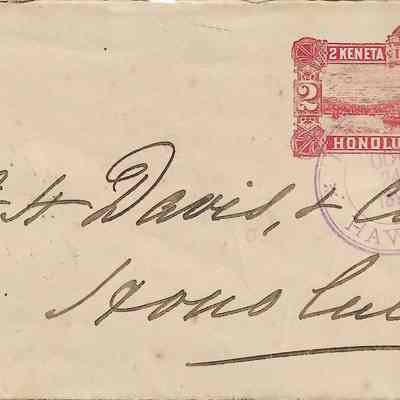 2 KENETA
2
HONOLU
HAV
H Davis, & C
Honolul